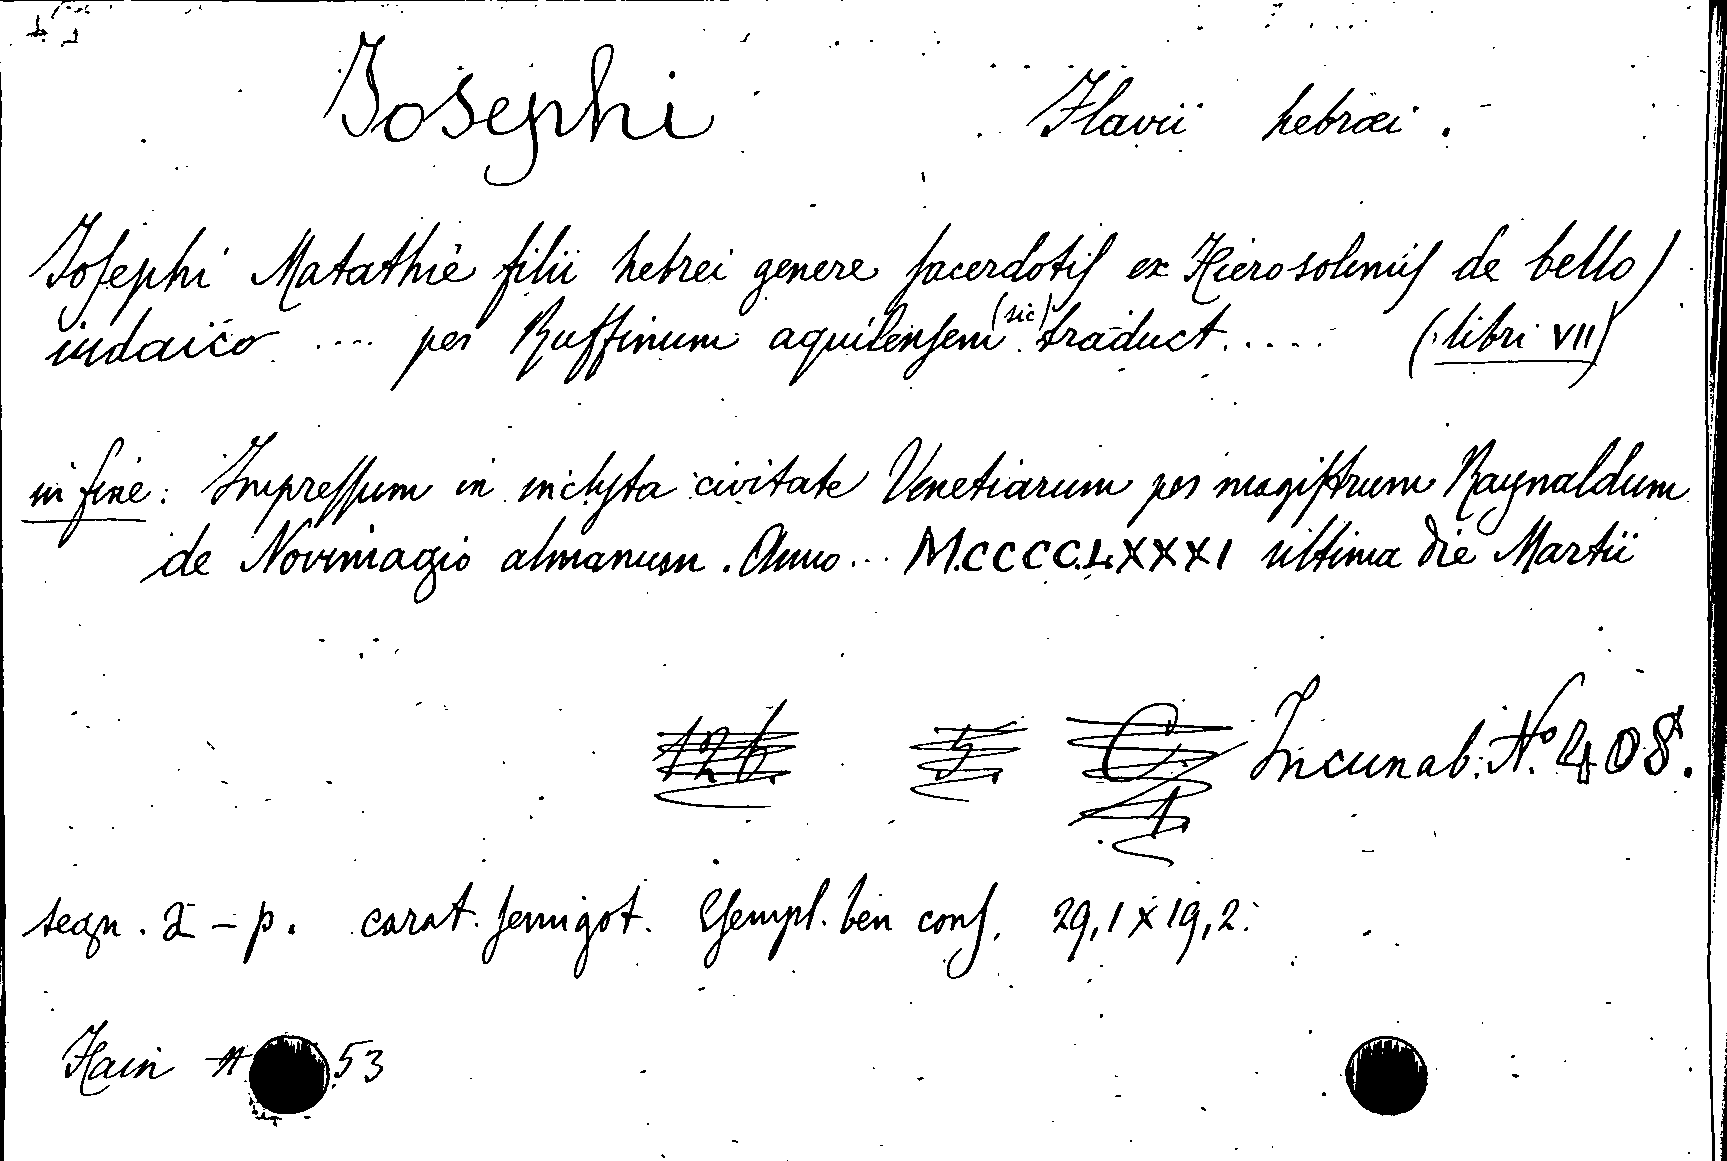 Josephi Flavii hebræi.
Josephi Matathie filii hebrei genere sacerdotis ex Hierosolimis de bello
iudaico .... per Ruffinum aquilensem (sic) traduct..... (libri VII)
in fine: Impressum in inclyta civitate Venetiarum per magistrum Raynaldum
de Novimagio almanum. Anno... M.CCCC.LXXXI ultima die Martii
Incunab. N.º 408.
segn. a – p. carat. semigot. Esempl. ben cons. 29,1 x 19,2.
Hain 53